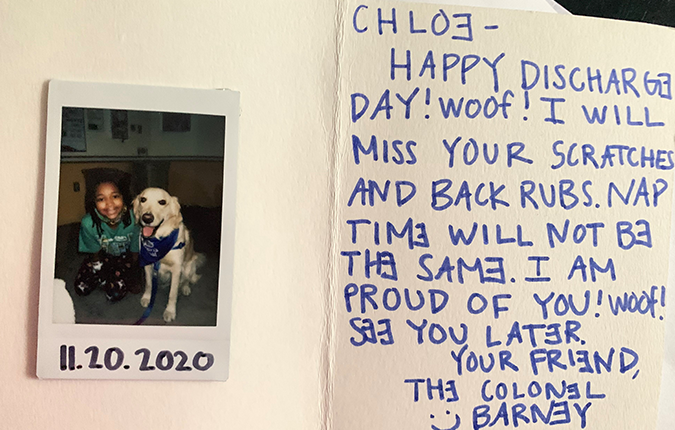 11.20.2020
CHLOE -
HAPPY DISCHARGE
DAY! woof! I WILL
MISS YOUR SCRATCHES
AND BACK RUBS. NAP
TIME WILL NOT BE
THE SAME. I AM
PROUD OF YOU! woof!
SEE YOU LATER.
YOUR FRIEND,
THE COLONEL
BARNEY